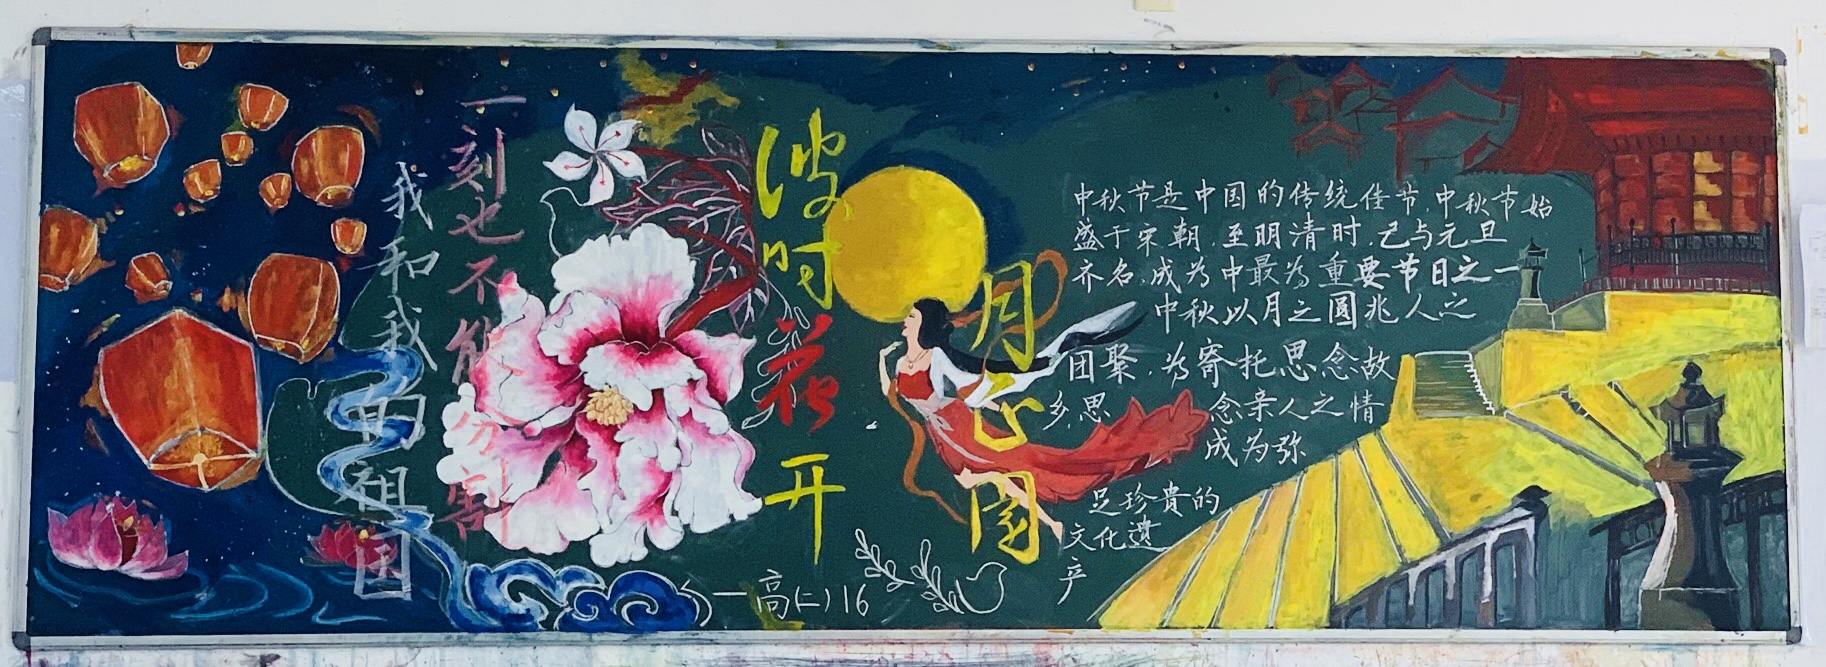 我和我的祖国
一刻也不能分割
彼时花开
月正圆
中秋节是中国的传统佳节,中秋节始
盛于宋朝,至明清时,已与元旦
齐名,成为中最为重要节日之一
中秋以月之圆兆人之
团聚,为寄托思念故
乡,思念亲人之情
成为弥
足珍贵的
文化遗
产
—高(二)16